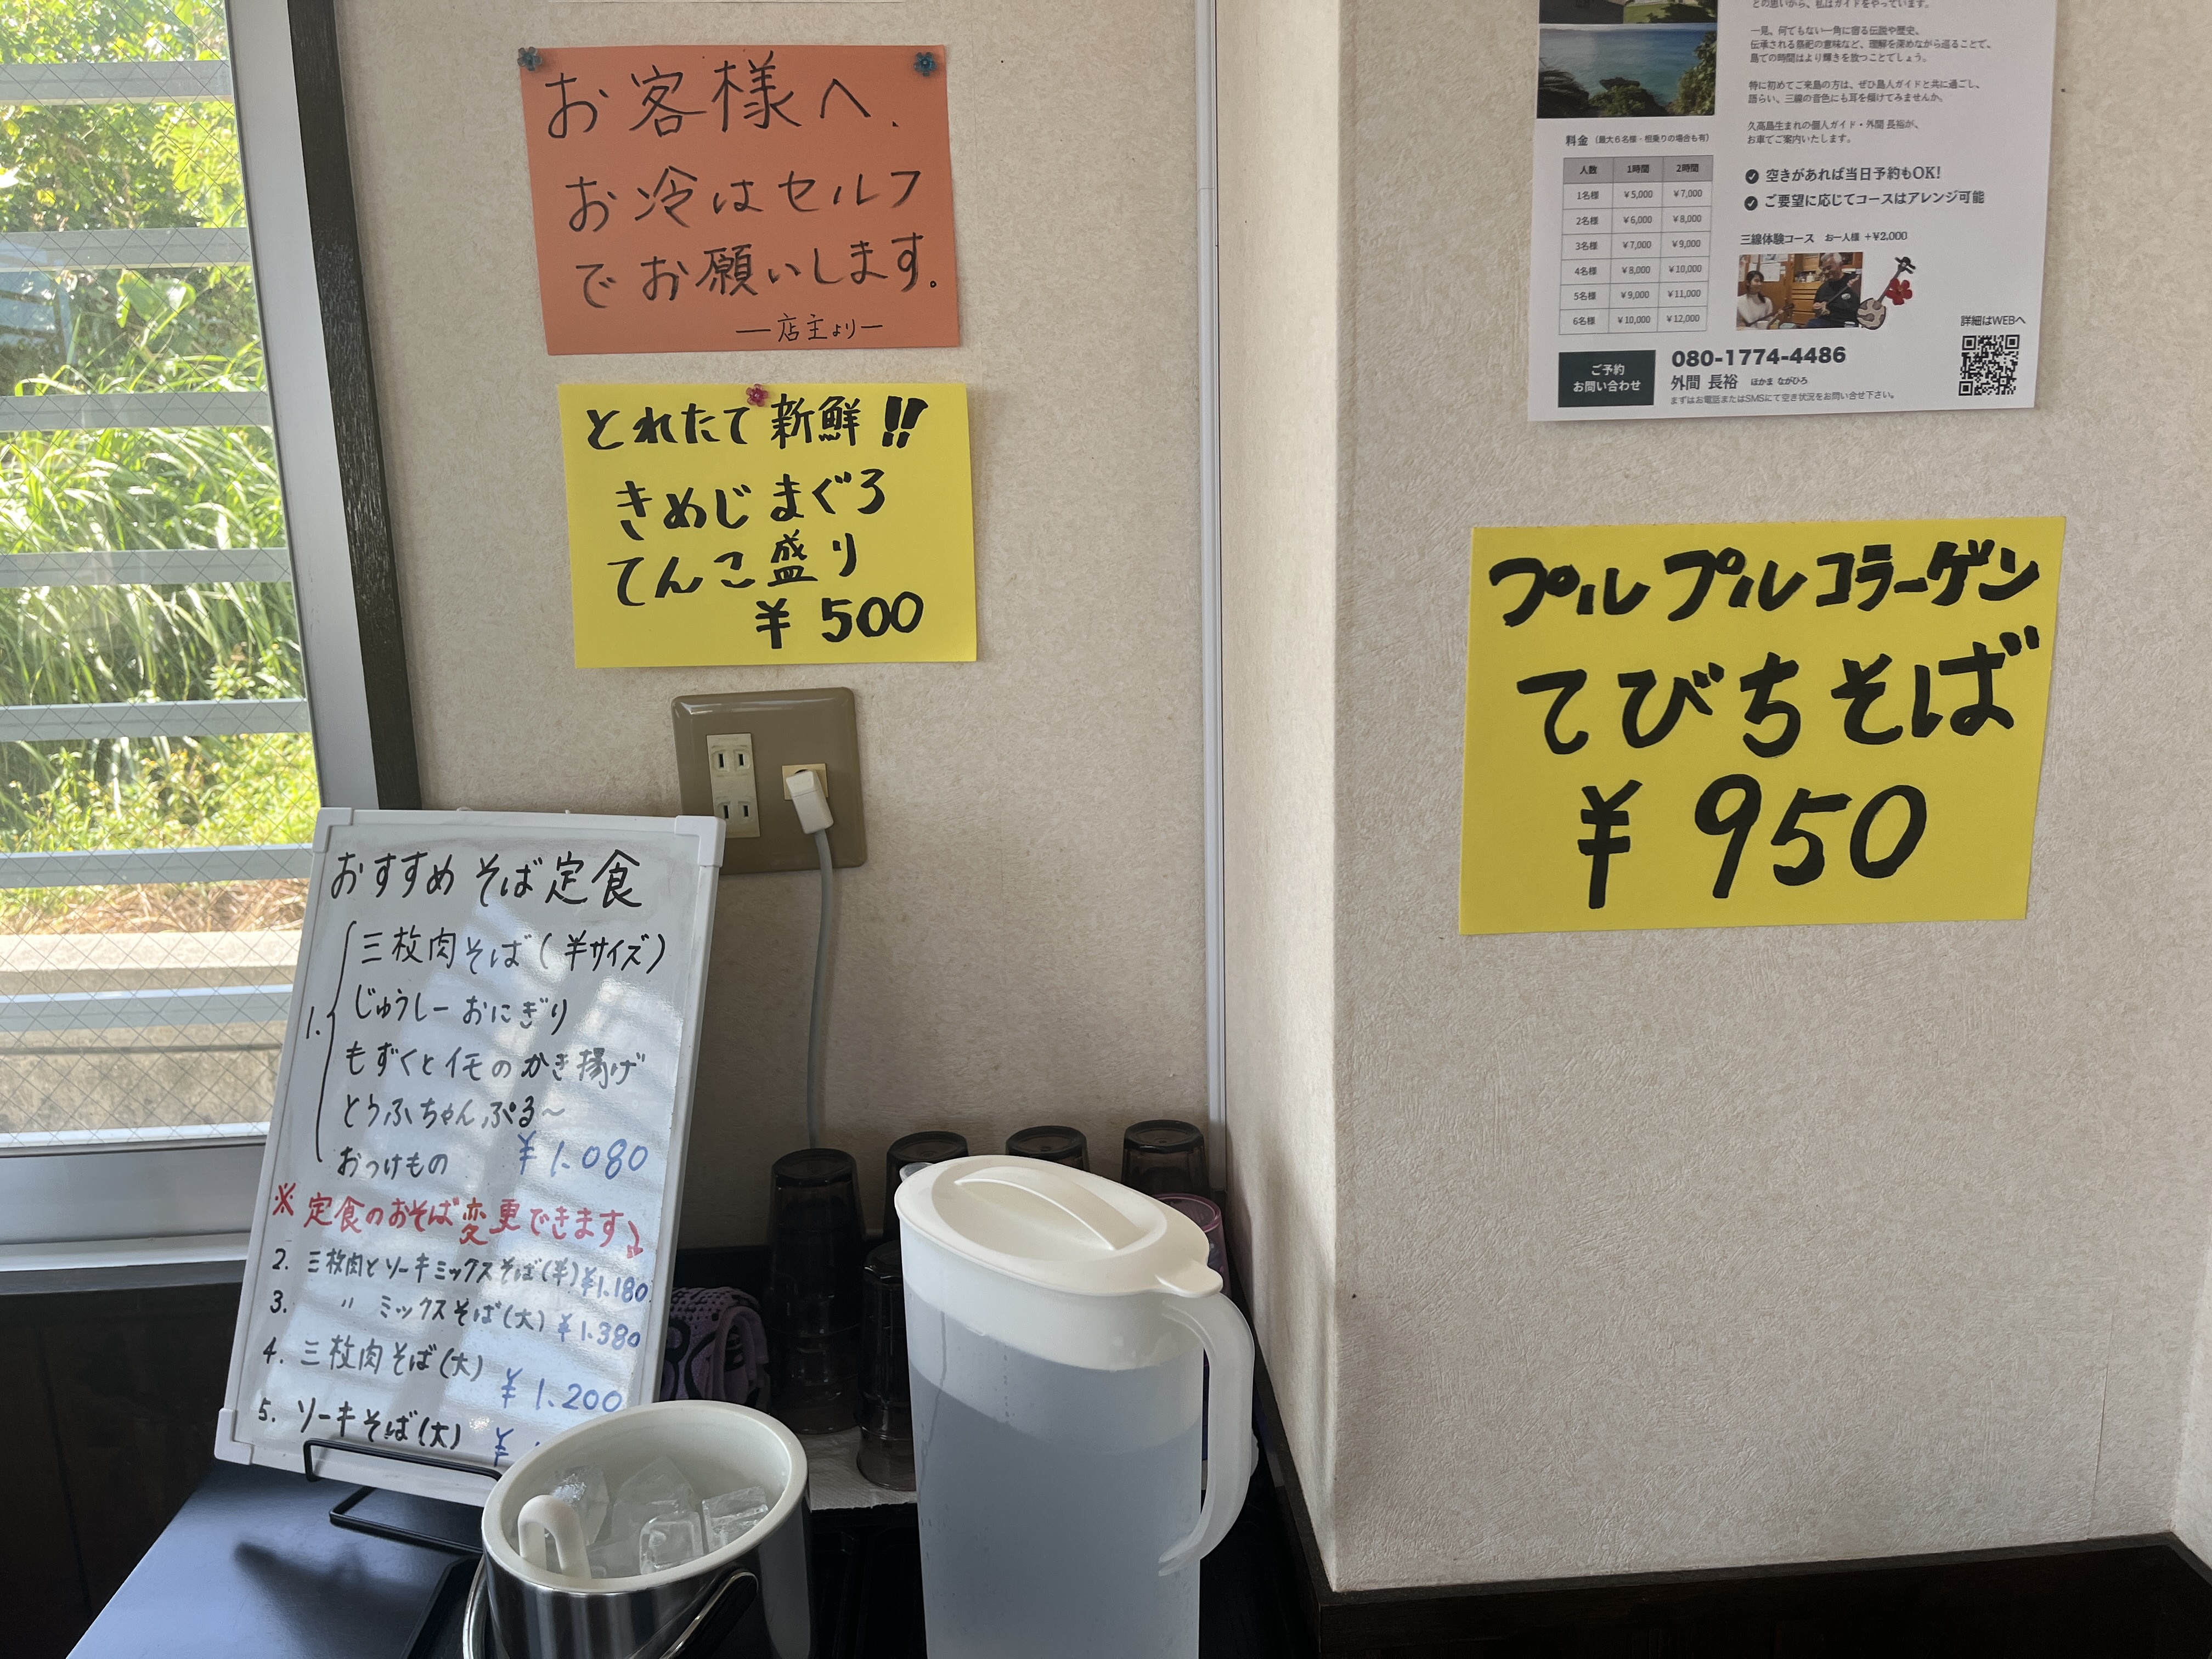 お客様へ、
お冷はセルフ
でお願いします。
―店主より―
とれたて新鮮!!
きめじまぐろ
てんこ盛り
¥500
おすすめそば定食
1.
三枚肉そば(半サイズ)
じゅうしーおにぎり
もずくとイモのかき揚げ
とうふちゃんぷる～
おつけもの ¥1.080
※定食のおそば変更できます
2. 三枚肉とソーキミックスそば(半)¥1.180
3. 〃 ミックスそば(大)¥1.380
4. 三枚肉そば(大)
¥1.200
5. ソーキそば(大) ¥
との思いから、私はガイドをやっています。
一見、何でもない一角に宿る伝説や歴史、
伝承される祭祀の意味など、理解を深めながら巡ることで、
島での時間はより輝きを放つことでしょう。
特に初めてご来島の方は、ぜひ島人ガイドと共に過ごし、
語らい、三線の音色にも耳を傾けてみませんか。
久高島生まれの個人ガイド・外間 長裕が、
お車でご案内いたします。
料金(最大6名様・相乗りの場合も有)
人数 1時間 2時間
1名様 ¥5,000 ¥7,000
2名様 ¥6,000 ¥8,000
3名様 ¥7,000 ¥9,000
4名様 ¥8,000 ¥10,000
5名様 ¥9,000 ¥11,000
6名様 ¥10,000 ¥12,000
空きがあれば当日予約もOK!
ご要望に応じてコースはアレンジ可能
三線体験コース お一人様 +¥2,000
詳細はWEBへ
ご予約
お問い合わせ
080-1774-4486
外間 長裕 ほかま ながひろ
まずはお電話またはSMSにて空き状況をお問い合せ下さい。
プルプルコラーゲン
てびちそば
¥950